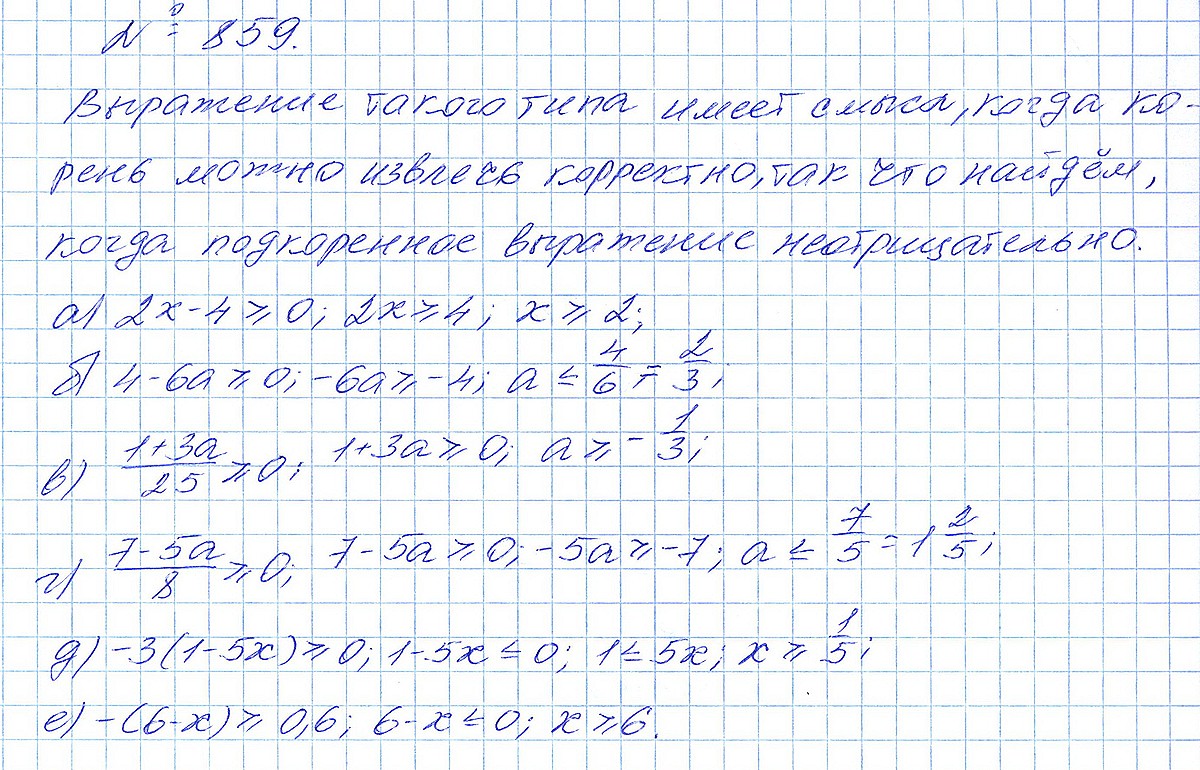 № 859.
Выражение такого типа имеет смысл, когда ко-
рень можно извлечь корректно, так что найдём,
когда подкоренное выражение неотрицательно.
а) 2x-4 ⩾ 0; 2x ⩾ 4; x ⩾ 2;
б) 4-6a ⩾ 0; -6a ⩾ -4; a ≤ 4/6 = 2/3;
в) (1+3a)/25 ⩾ 0; 1+3a ⩾ 0; a ⩾ -1/3;
г) (7-5a)/8 ⩾ 0; 7-5a ⩾ 0; -5a ⩾ -7; a ≤ 7/5 = 1 2/5;
д) -3(1-5x) ⩾ 0; 1-5x ≤ 0; 1 ≤ 5x; x ⩾ 1/5;
е) -(6-x) ⩾ 0,6; 6-x ≤ 0; x ⩾ 6.